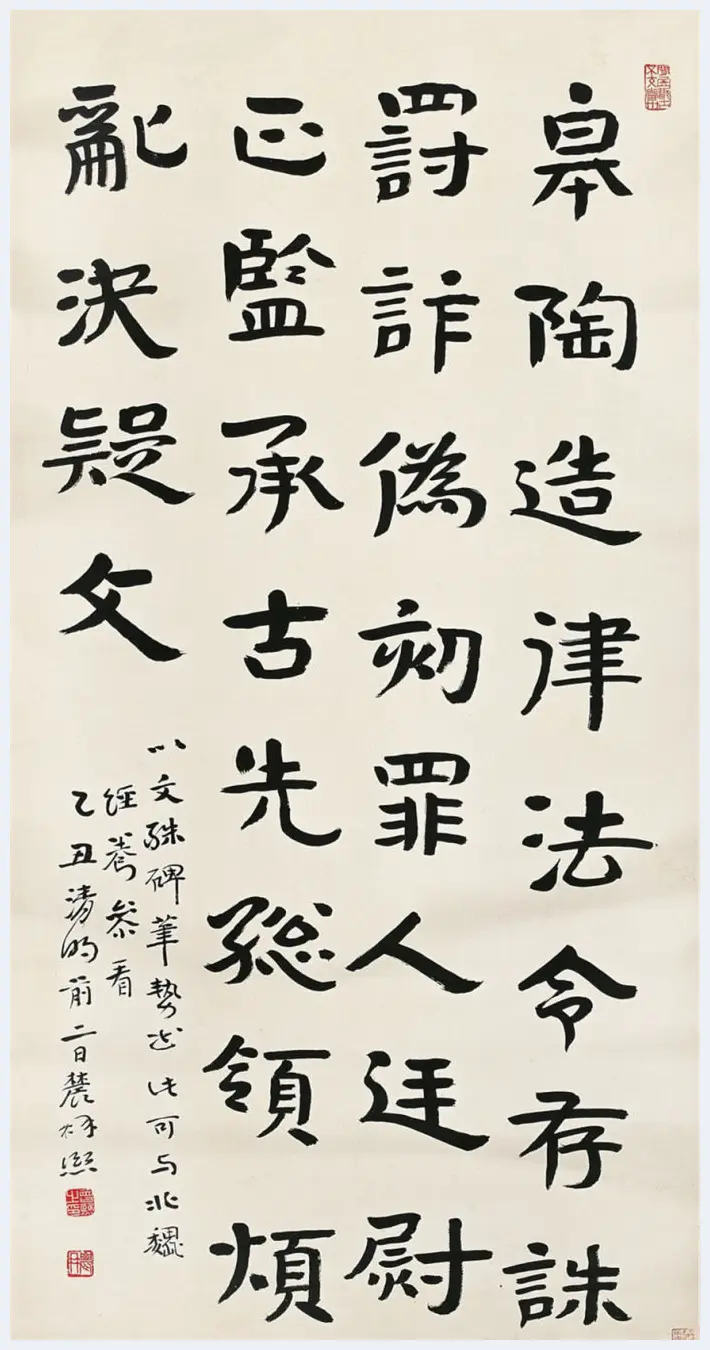 皋陶造律法令存誅
罸詐偽劾罪人廷尉
正監承古先總領煩
亂決疑文
以文殊碑筆勢此可与北魏
經卷參看
乙丑清明前二日農髯熙